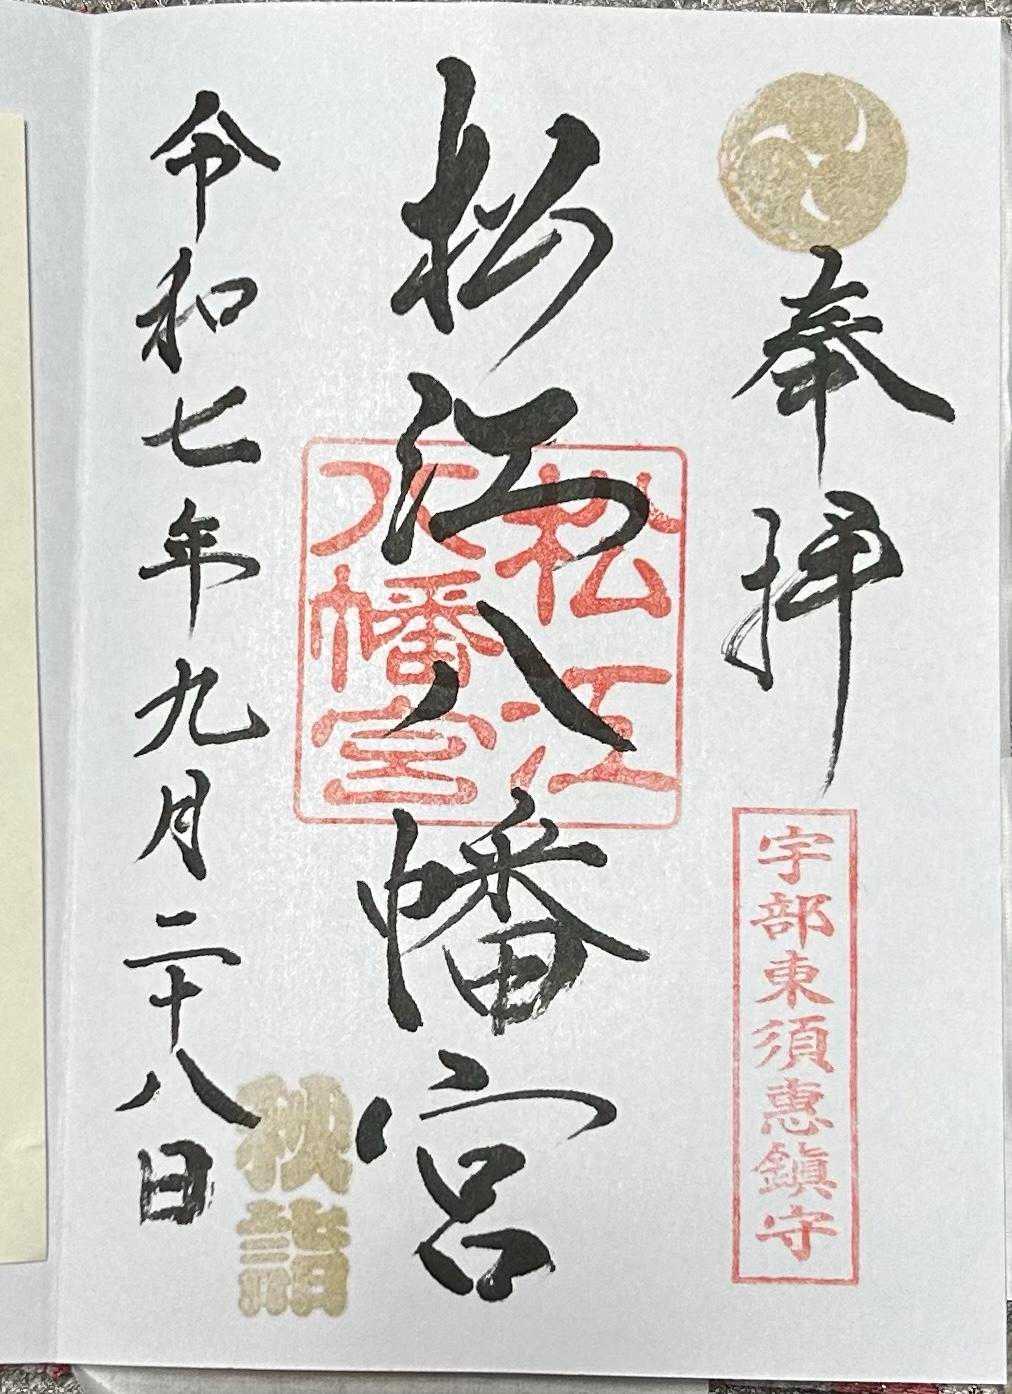 奉拝
宇部東須恵鎮守
松江八幡宮
松江
八幡宮
令和七年九月二十八日
秋詣